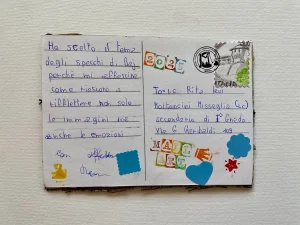 Ho scelto il tema
degli specchi di
perché mi affascina
come riescono a
riflettere non solo
le immagini ma
anche le emozioni
Con affetto
2026
Rita
Missaglia (LC)
secondaria di I° Grado
Via G. Garibaldi
MAIL
ART